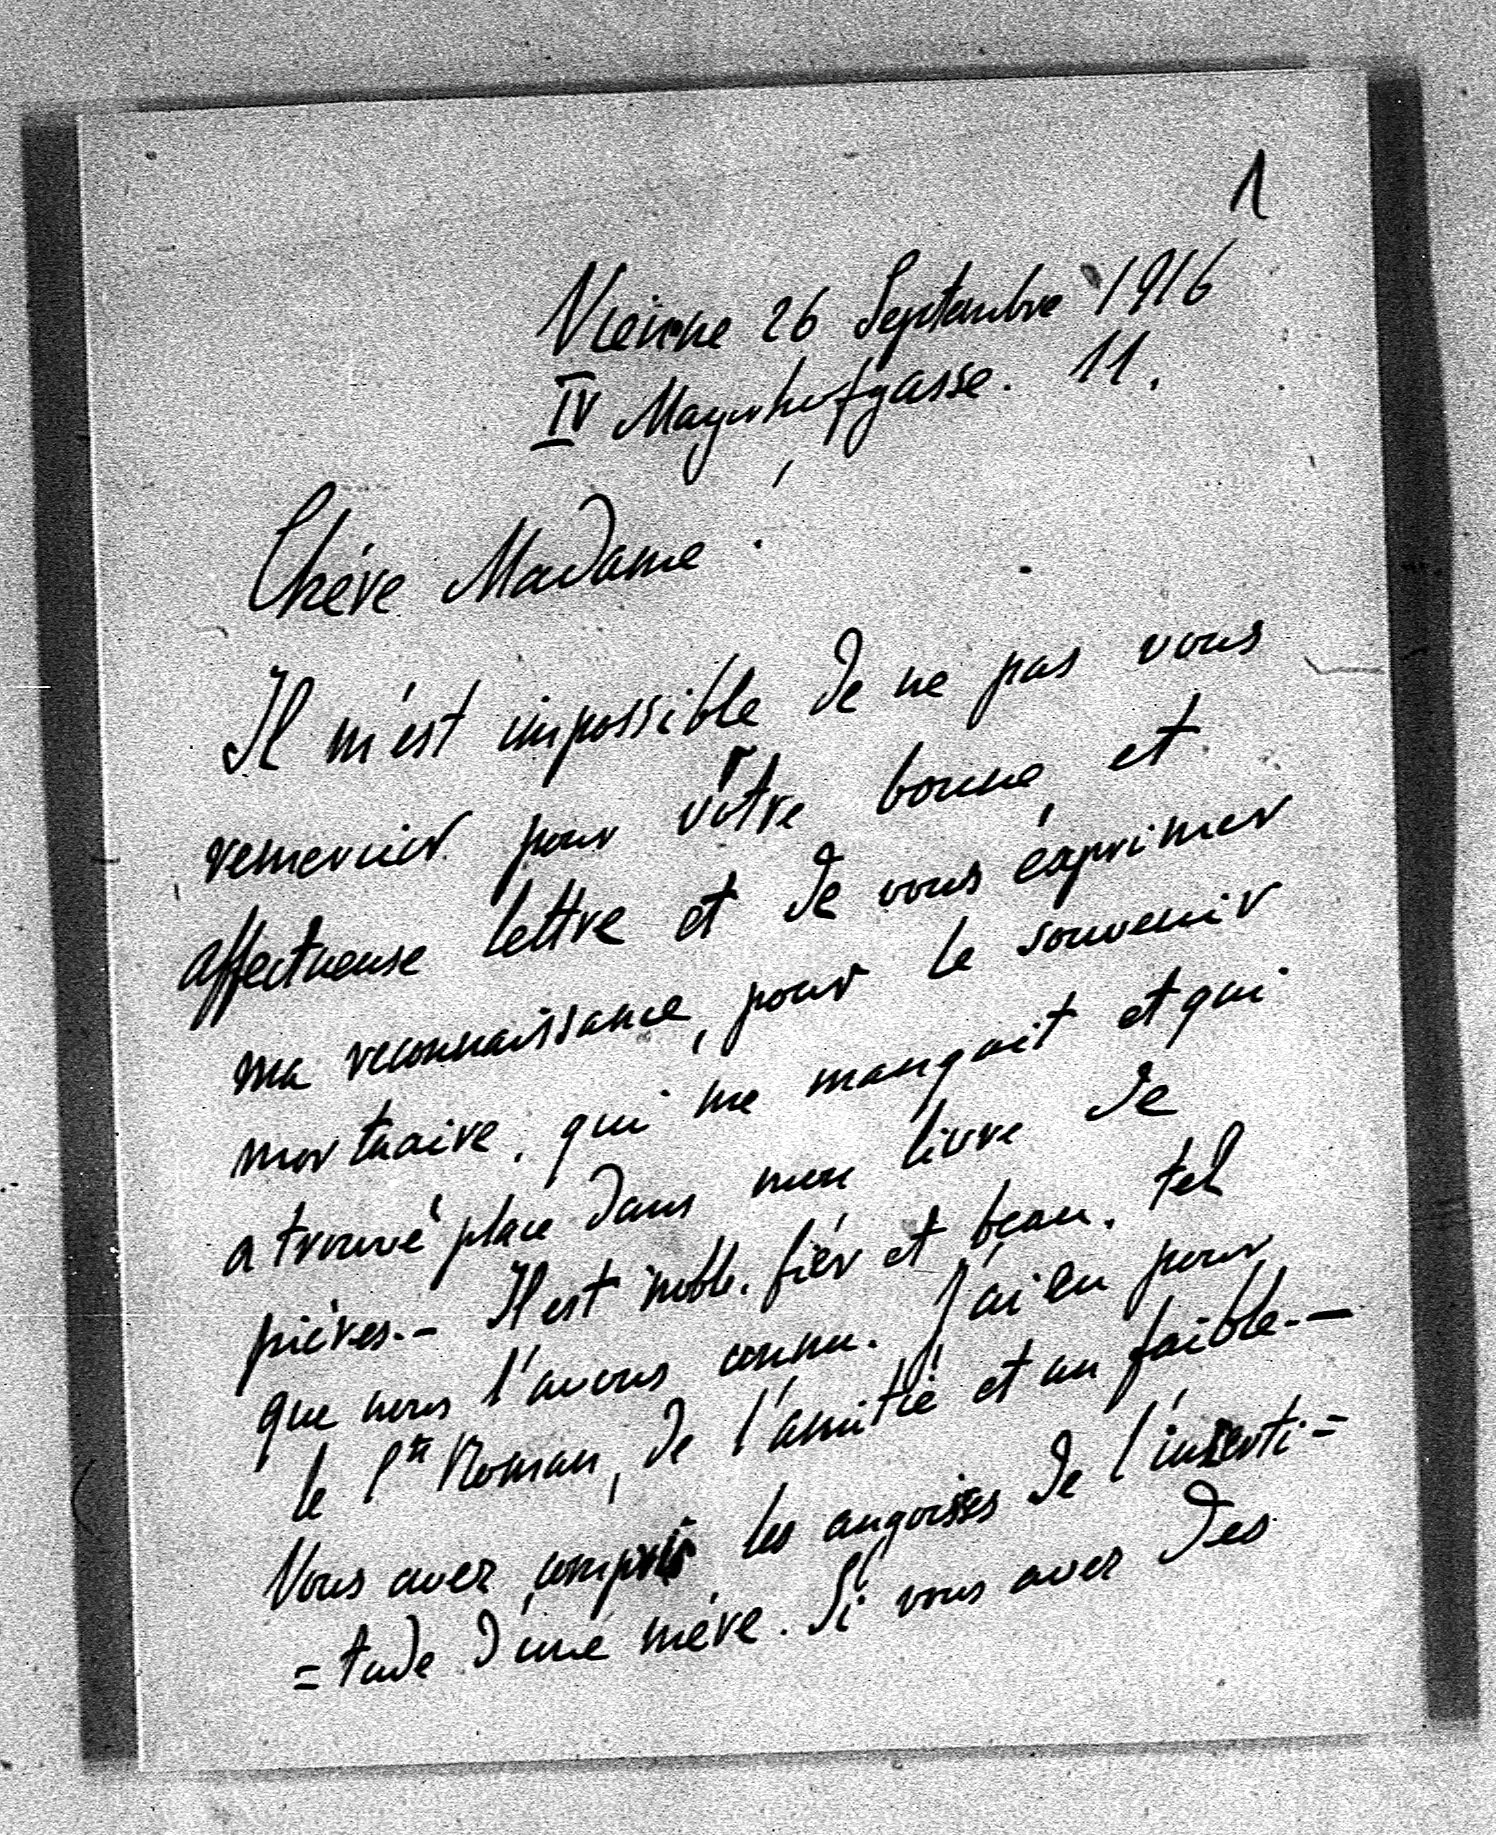 1
Vienne 26 Septembre 1916
IV Mayerhofgasse. 11.
Chére Madame!
Il m'est impossible de ne pas vous
remercier pour vôtre bonne et
affectueuse lettre et de vous éxprimer
ma reconnaissance, pour le souvenir
mortuaire, qui me manquait et qui
a trouvé place dans mon livre de
prières.- Il est noble, fiér et beau, tel
que nous l'avons connu. J'ai eu pour
le Cte Roman, de l'amitié et un faible.-
Vous avez compris les angoisses de l'inserti=
=tude d'une mére. Si vous avez des